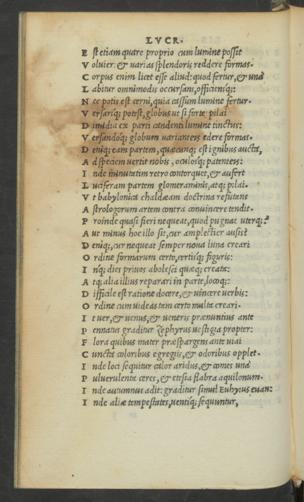 LVCR.
E st etiam quare proprio cum lumine possit
V oluier: & uarias splendoris reddere formas.
C orpus enim licet esse aliud: quod fertur, & una
L abitur omnimodis occursans, officiensq;:
N ec potis est cerni, quia cassum lumine fertur.
V ersariq; potest, globus ut si forte pilai
D imidia ex parti candenti lumine tinctus:
V ersandoq; globum uarianteis edere formas.
D eniq; eam partem, quæcunq; est ignibus aucta,
A d speciem uertit nobis, oculosq; patenteis:
I nde minutatim retro contorquet, & aufert
L uciferam partem glomeraminis, atq; pilai.
V t babylonica chaldæam doctrina refutans
A strologorum artem contra conuincere tendit.
P roinde quasi fieri nequeat, quod pugnat uterq;:
A ut minus hoc illo sit, cur amplectier ausit
D eniq;, cur nequeat semper noua luna creari
O rdine formarum certo, certisq; figuris:
I nq; dies priuos abolesci quæq; creata:
A tq; alia illius reparari in parte, locoq;:
D ifficile est ratione docere, & uincere uerbis:
O rdine cum uideas tam certo multa creari.
I t uer, & uenus, & ueneris prænuntius ante
P ennatus graditur Zephyrus uestigia propter:
F lora quibus mater præspargens ante uiai
C uncta coloribus egregiis, & odoribus opplet.
I nde loci sequitur calor aridus, & comes una
P uluerulenta ceres, & etesia flabra aquilonum.
I nde autumnus adit: graditur simul Euhyus euan:
I nde aliæ tempestates, uentiq; sequuntur,